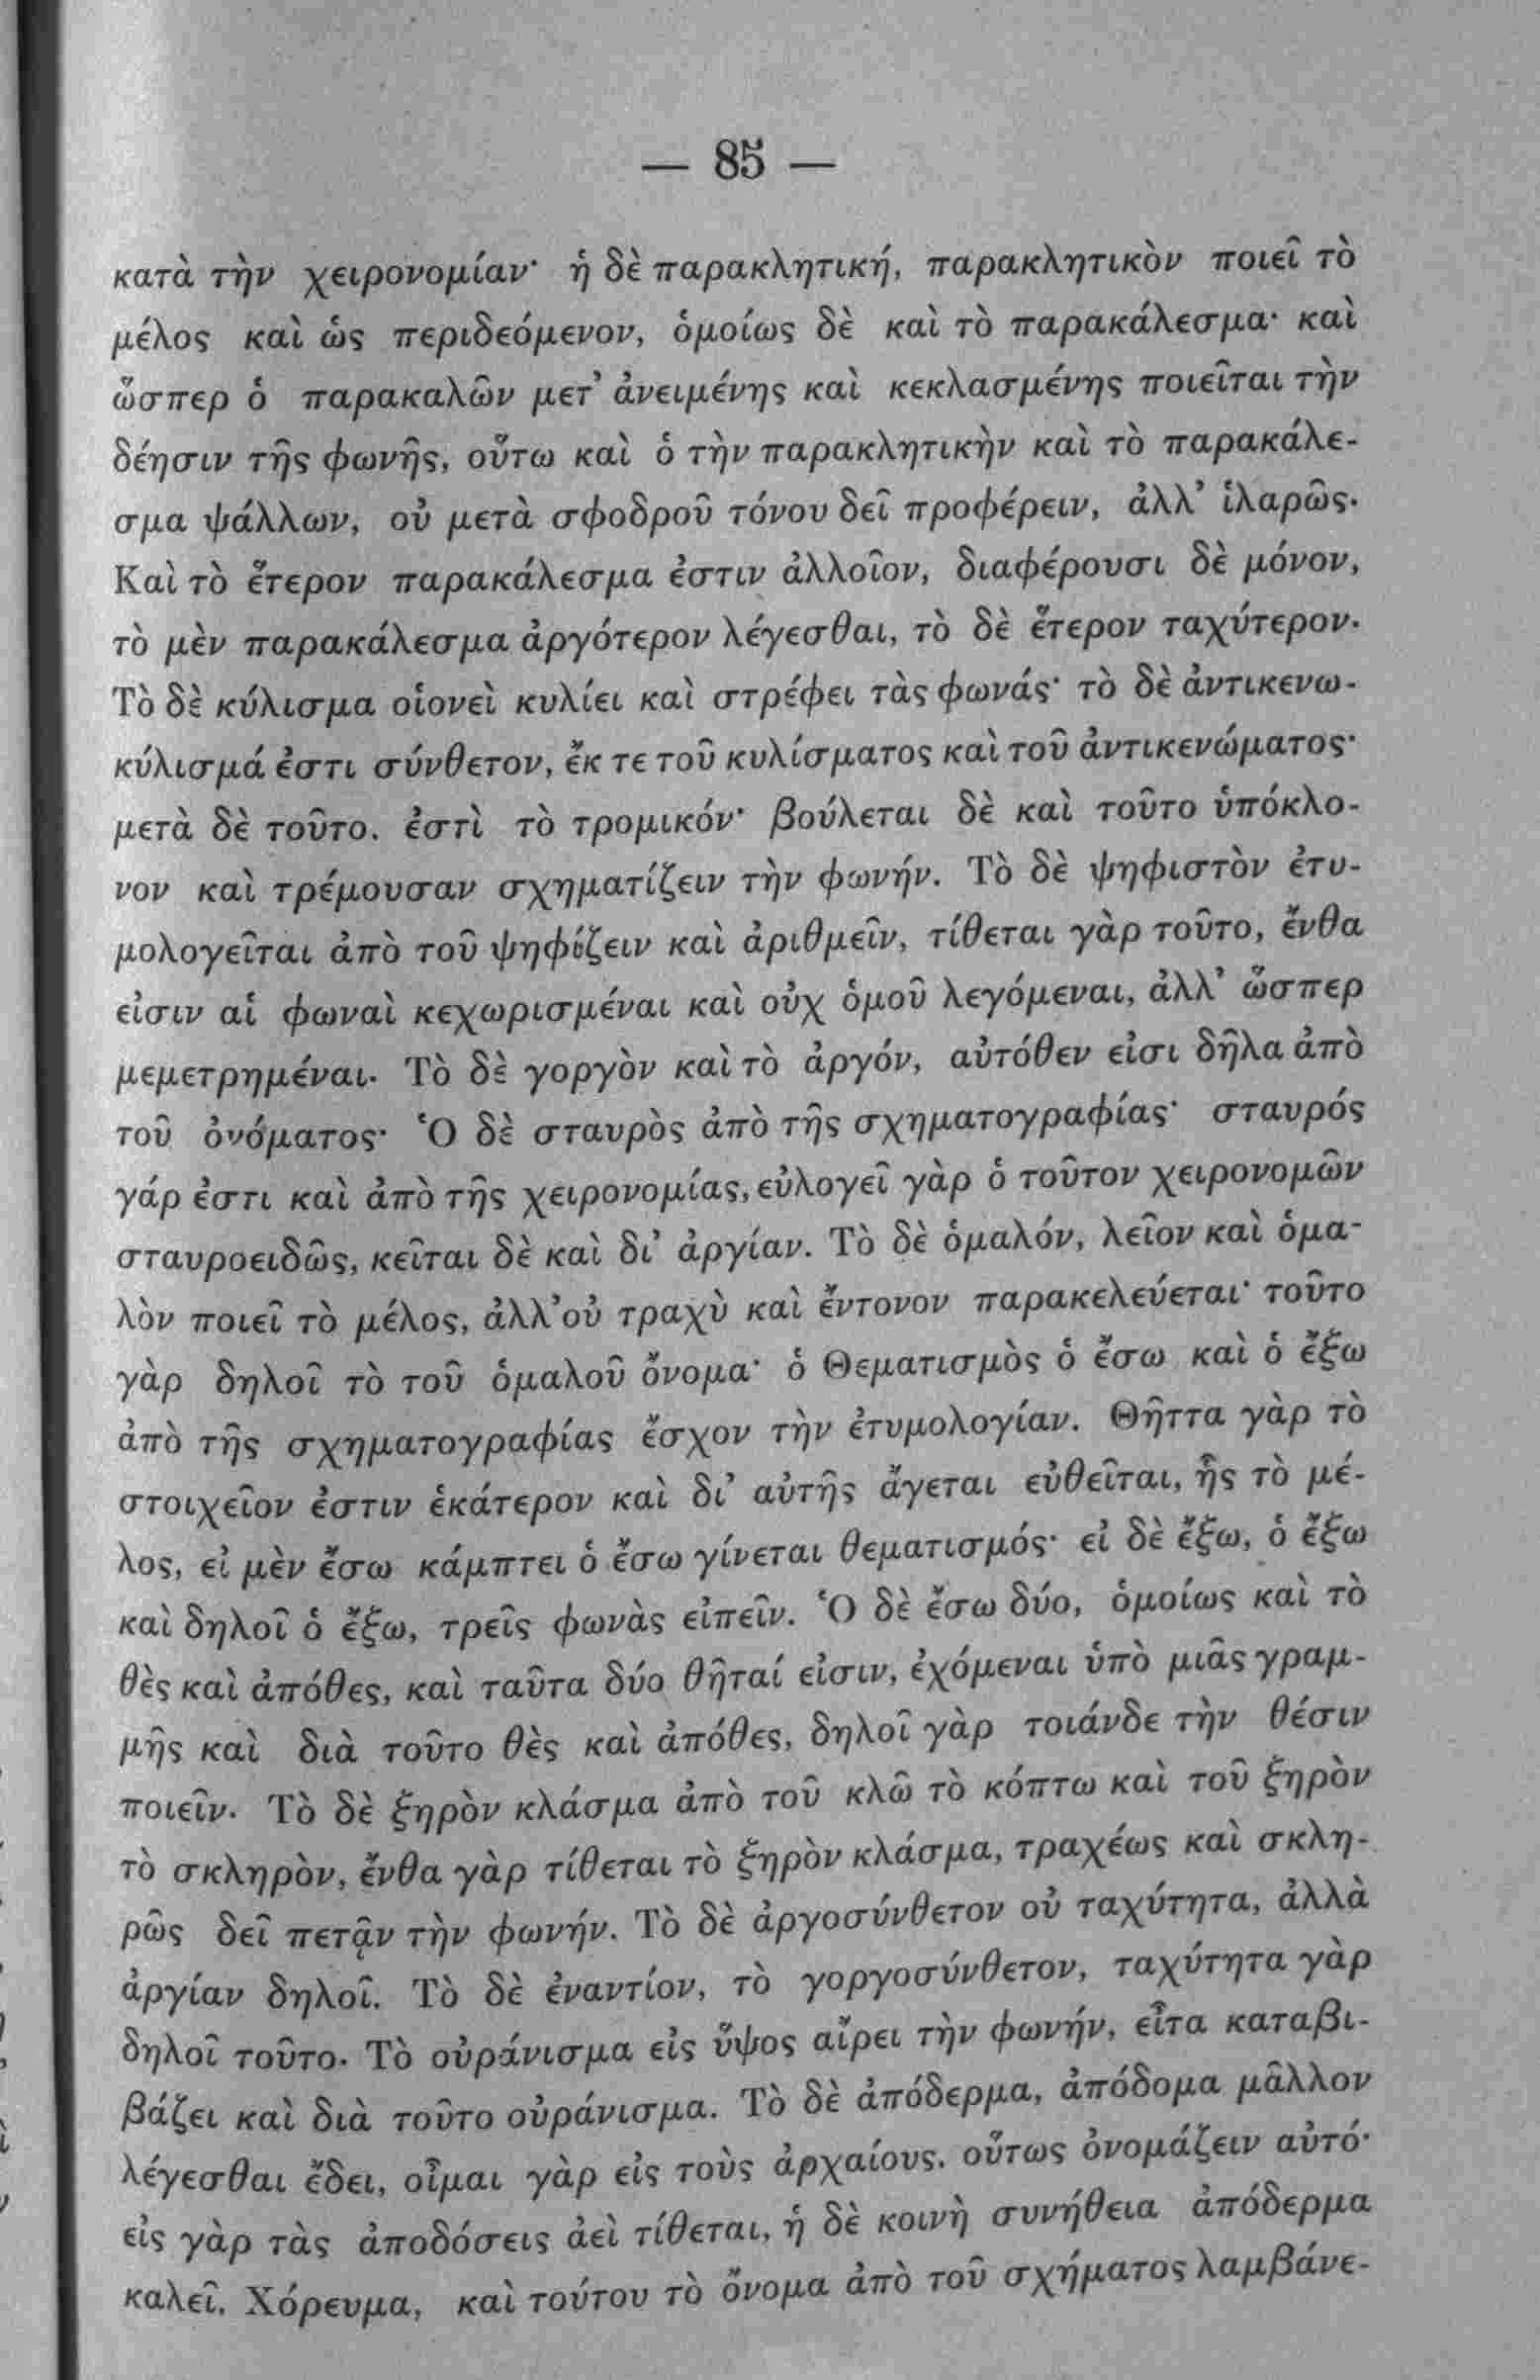 — 85 —
κατὰ τὴν χειρονομίαν· ἡ δὲ παρακλητική, παρακλητικὸν ποιεῖ τὸ
μέλος καὶ ὡς περιδεόμενον, ὁμοίως δὲ καὶ τὸ παρακάλεσμα· καὶ
ὥσπερ ὁ παρακαλῶν μετ’ ἀνειμένης καὶ κεκλασμένης ποιεῖται τὴν
δέησιν τῆς φωνῆς, οὕτω καὶ ὁ τὴν παρακλητικὴν καὶ τὸ παρακάλε-
σμα ψάλλων, οὐ μετὰ σφοδροῦ τόνου δεῖ προφέρειν, ἀλλ’ ἱλαρῶς.
Καὶ τὸ ἕτερον παρακάλεσμα ἐστιν ἀλλοῖον, διαφέρουσι δὲ μόνον,
τὸ μὲν παρακάλεσμα ἀργότερον λέγεσθαι, τὸ δὲ ἕτερον ταχύτερον.
Τὸ δὲ κύλισμα οἱονεὶ κυλίει καὶ στρέφει τὰς φωνάς· τὸ δὲ ἀντικενω-
κύλισμά ἐστι σύνθετον, ἔκ τε τοῦ κυλίσματος καὶ τοῦ ἀντικενώματος·
μετὰ δὲ τοῦτο. ἐστὶ τὸ τρομικόν· βούλεται δὲ καὶ τοῦτο ὑπόκλο-
νον καὶ τρέμουσαν σχηματίζειν τὴν φωνήν. Τὸ δὲ ψηφιστὸν ἐτυ-
μολογεῖται ἀπὸ τοῦ ψηφίζειν καὶ ἀριθμεῖν, τίθεται γὰρ τοῦτο, ἔνθα
εἰσιν αἱ φωναὶ κεχωρισμέναι καὶ οὐχ ὁμοῦ λεγόμεναι, ἀλλ’ ὥσπερ
μεμετρημέναι. Τὸ δὲ γοργὸν καὶ τὸ ἀργόν, αὐτόθεν εἰσι δῆλα ἀπὸ
τοῦ ὀνόματος· Ὁ δὲ σταυρὸς ἀπὸ τῆς σχηματογραφίας· σταυρός
γάρ ἐστι καὶ ἀπὸ τῆς χειρονομίας, εὐλογεῖ γὰρ ὁ τοῦτον χειρονομῶν
σταυροειδῶς, κεῖται δὲ καὶ δι’ ἀργίαν. Τὸ δὲ ὁμαλόν, λεῖον καὶ ὁμα-
λὸν ποιεῖ τὸ μέλος, ἀλλ’ οὐ τραχὺ καὶ ἔντονον παρακελεύεται· τοῦτο
γὰρ δηλοῖ τὸ τοῦ ὁμαλοῦ ὄνομα· ὁ Θεματισμὸς ὁ ἔσω καὶ ὁ ἔξω
ἀπὸ τῆς σχηματογραφίας ἔσχον τὴν ἐτυμολογίαν. Θῆττα γὰρ τὸ
στοιχεῖον ἐστιν ἑκάτερον καὶ δι’ αὐτῆς ἄγεται εὐθεῖται, ἧς τὸ μέ-
λος, εἰ μὲν ἔσω κάμπτει ὁ ἔσω γίνεται θεματισμός· εἰ δὲ ἔξω, ὁ ἔξω
καὶ δηλοῖ ὁ ἔξω, τρεῖς φωνὰς εἰπεῖν. Ὁ δὲ ἔσω δύο, ὁμοίως καὶ τὸ
θὲς καὶ ἀπόθες, καὶ ταῦτα δύο θῆταί εἰσιν, ἐχόμεναι ὑπὸ μιᾶς γραμ-
μῆς καὶ διὰ τοῦτο θὲς καὶ ἀπόθες, δηλοῖ γὰρ τοιάνδε τὴν θέσιν
ποιεῖν. Τὸ δὲ ξηρὸν κλάσμα ἀπὸ τοῦ κλῶ τὸ κόπτω καὶ τοῦ ξηρὸν
τὸ σκληρὸν, ἔνθα γὰρ τίθεται τὸ ξηρὸν κλάσμα, τραχέως καὶ σκλη-
ρῶς δεῖ πετᾷν τὴν φωνήν. Τὸ δὲ ἀργοσύνθετον οὐ ταχύτητα, ἀλλὰ
ἀργίαν δηλοῖ. Τὸ δὲ ἐναντίον, τὸ γοργοσύνθετον, ταχύτητα γὰρ
δηλοῖ τοῦτο. Τὸ οὐράνισμα εἰς ὕψος αἴρει τὴν φωνήν, εἶτα καταβι-
βάζει καὶ διὰ τοῦτο οὐράνισμα. Τὸ δὲ ἀπόδερμα, ἀπόδομα μᾶλλον
λέγεσθαι ἔδει, οἶμαι γὰρ εἰς τοὺς ἀρχαίους. οὕτως ὀνομάζειν αὐτό·
εἰς γὰρ τὰς ἀποδόσεις ἀεὶ τίθεται, ἡ δὲ κοινὴ συνήθεια ἀπόδερμα
καλεῖ. Χόρευμα, καὶ τούτου τὸ ὄνομα ἀπὸ τοῦ σχήματος λαμβάνε-